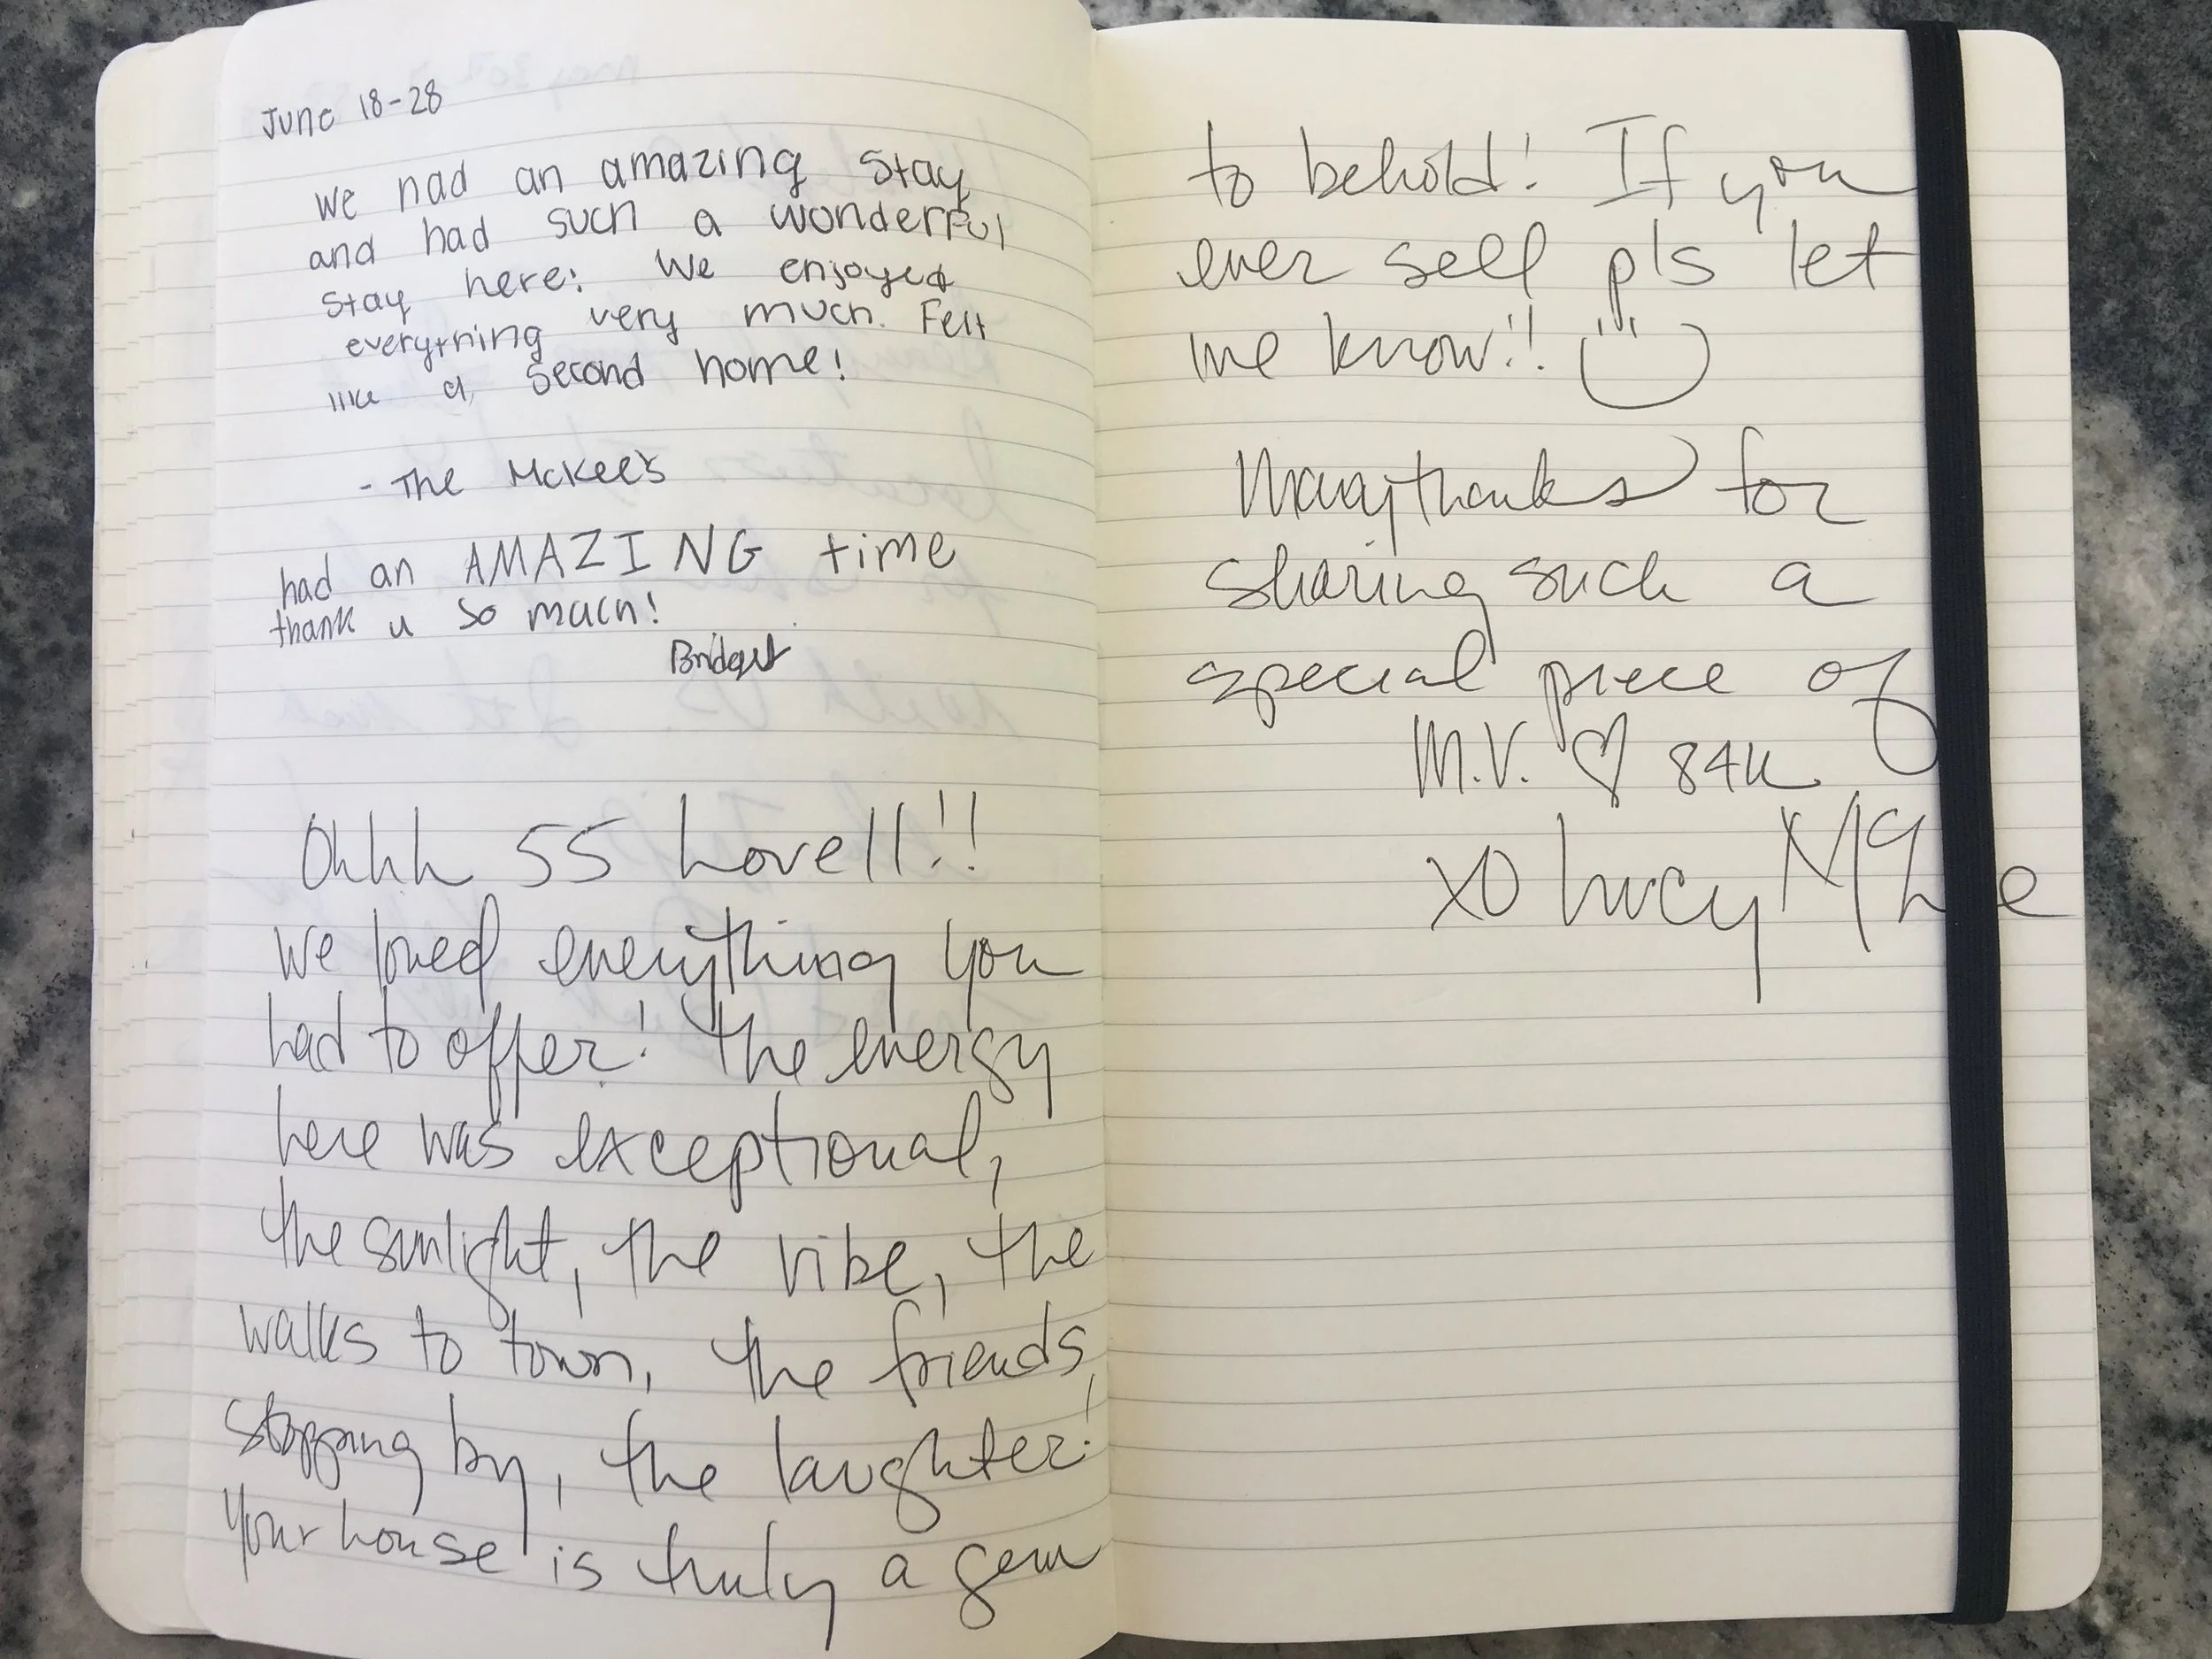 June 18-28
we had an amazing stay
and had such a wonderful
stay here! We enjoyed
everything very much. Felt
like a second home!
- The McKee's
had an AMAZING time
thank u so much!
Bridget
Ohhh 55 Lovell!!
we loved everything you
had to offer! The energy
here was exceptional,
the sunlight, the vibe, the
walks to town, the friends
stopping by, the laughter!
Your house is truly a gem
to behold! If you
ever sell pls let
me know!!
Many thanks for
sharing such a
special piece of
M.V. ♡ 84K
xo Lucy